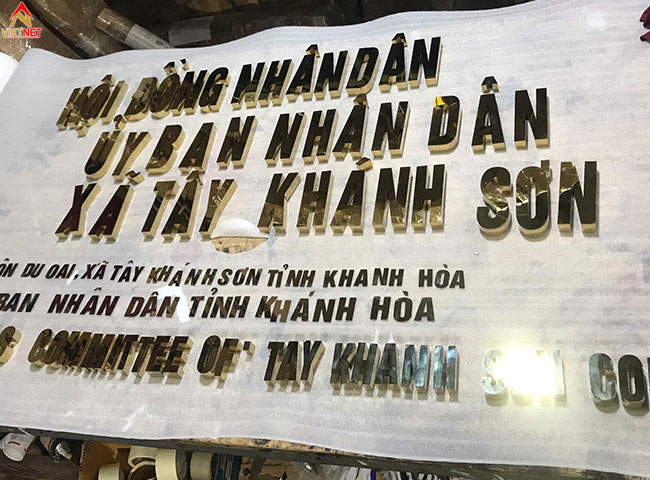 VIETNET
HỘI ĐỒNG NHÂN DÂN
ỦY BAN NHÂN DÂN
XÃ TÂY KHÁNH SƠN
ÔN DU OAI, XÃ TÂY KHÁNH SƠN TỈNH KHANH HÒA
BAN NHÂN DÂN TỈNH KHÁNH HÒA
COMMITTEE OF TAY KHANH SON CO